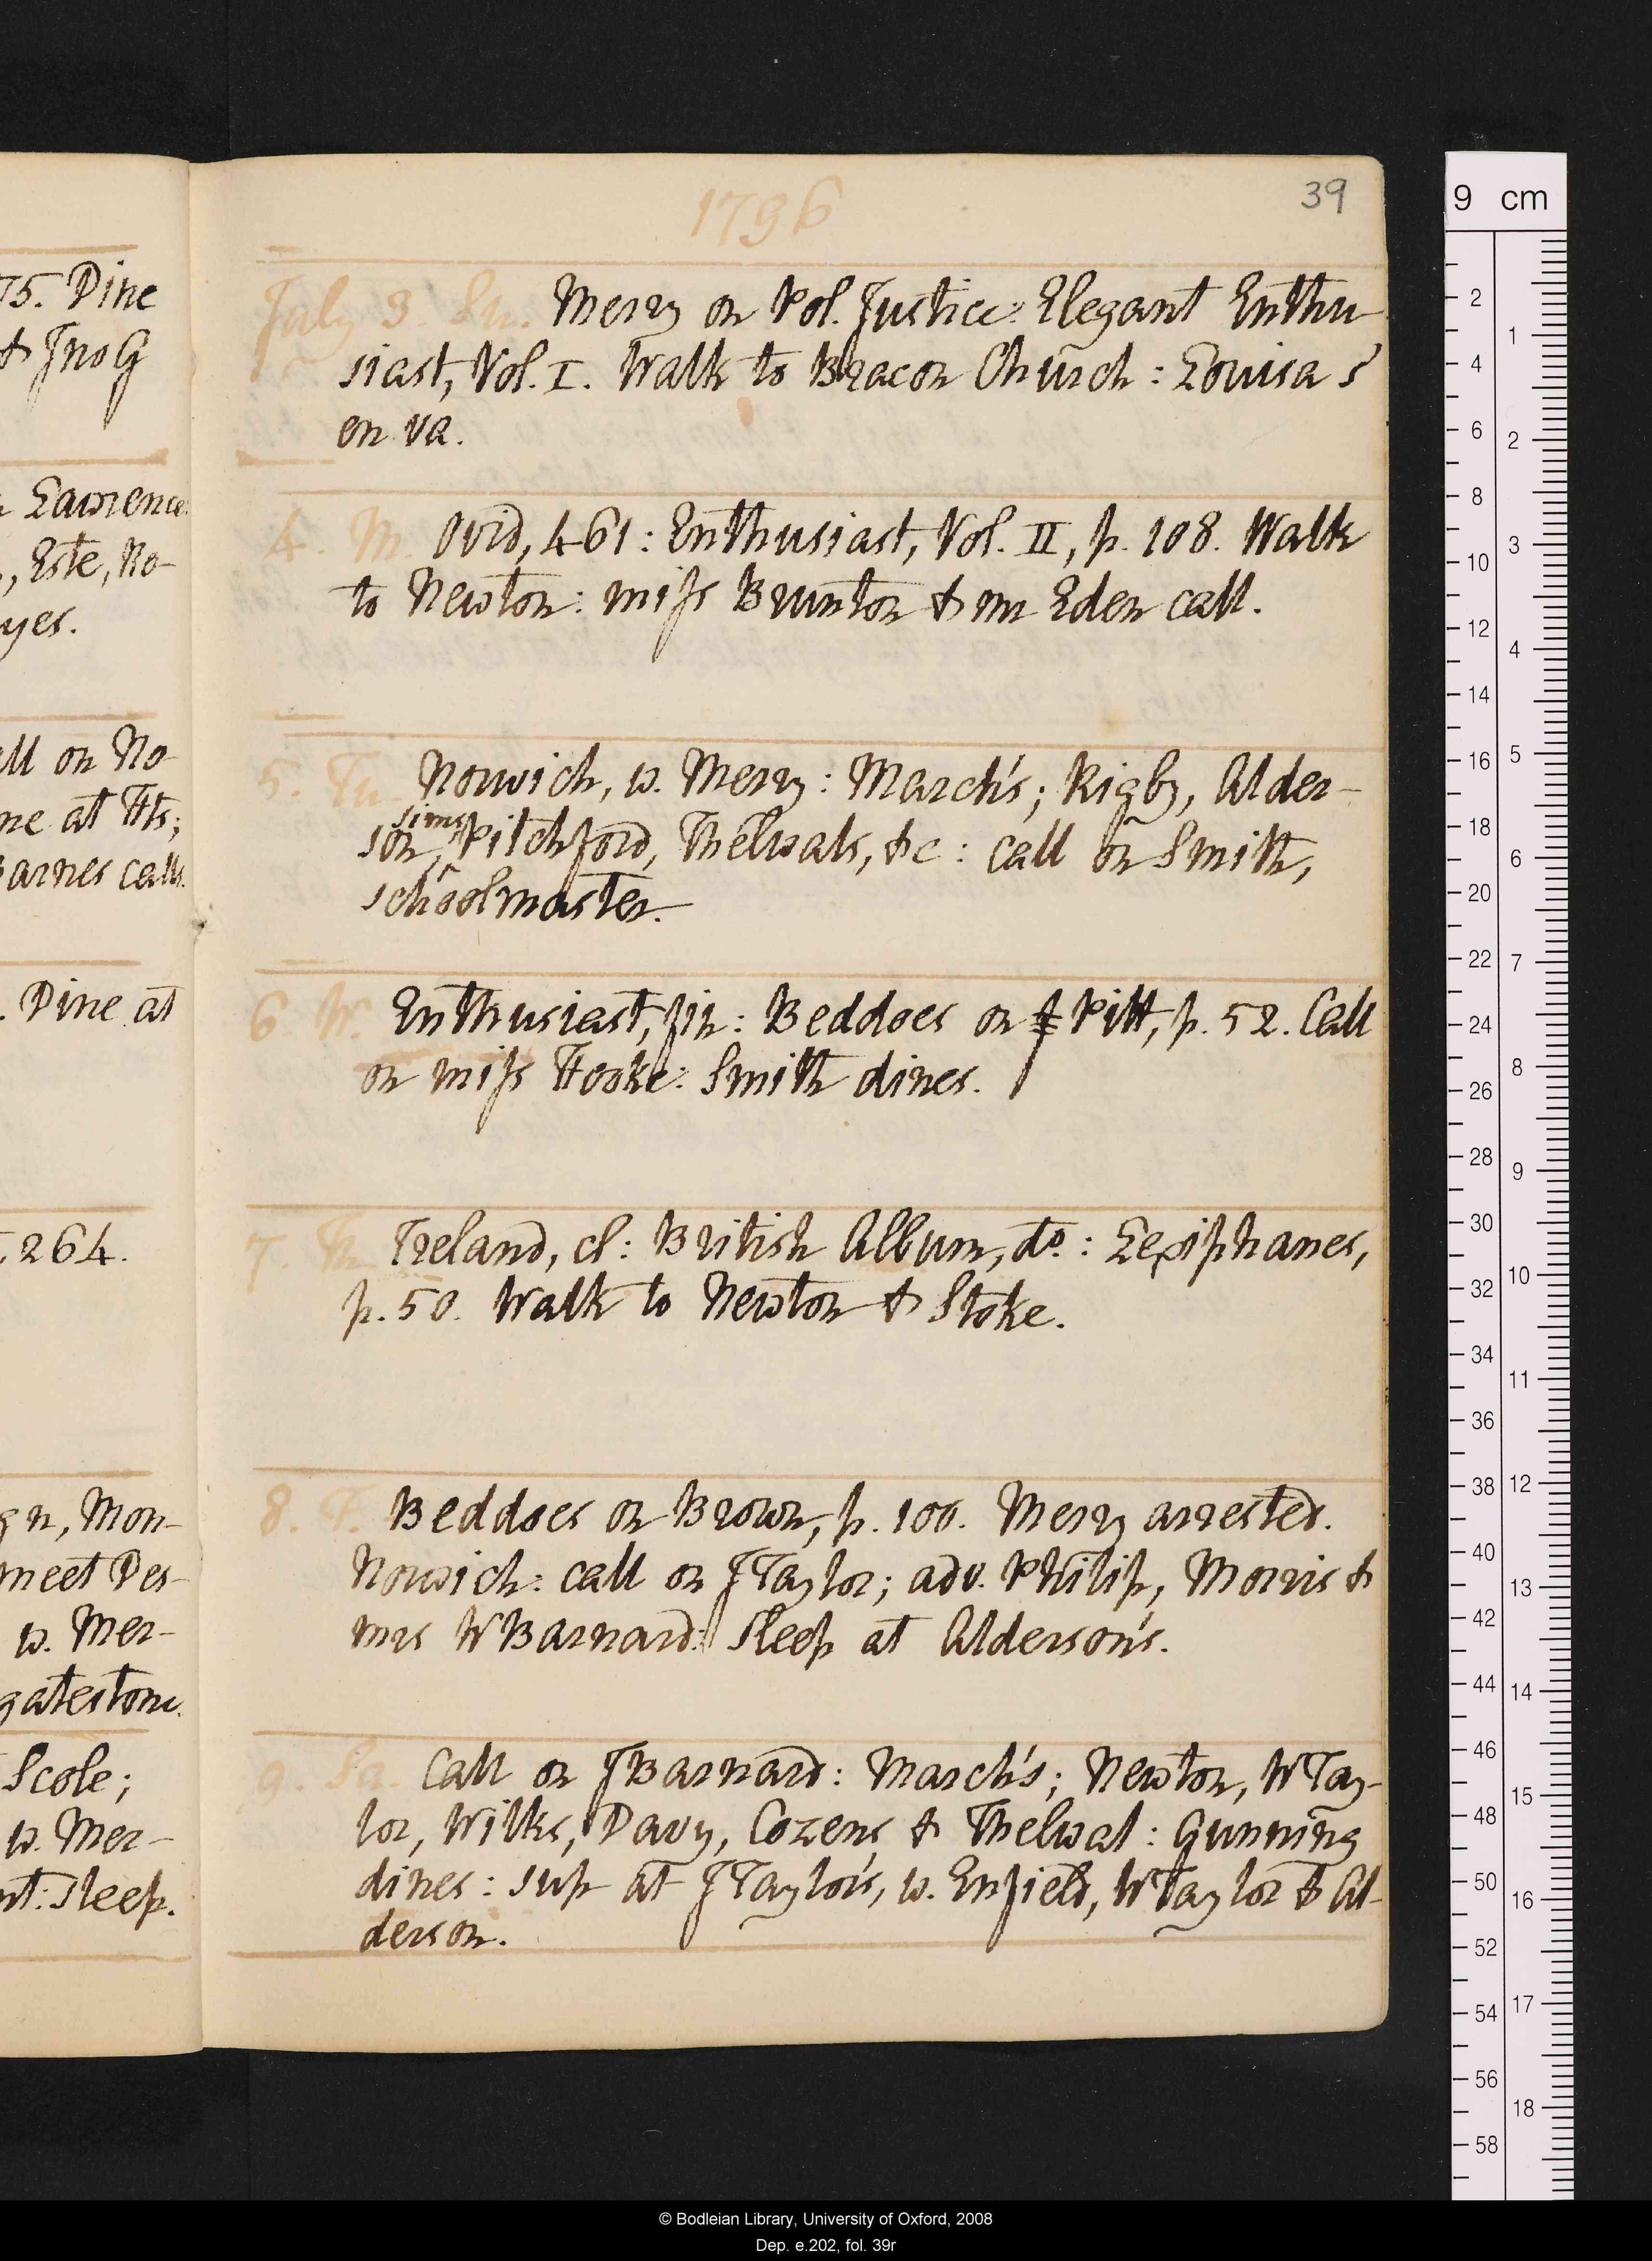 75. Dine
& JnoG
Lawrence
, Este, Ro-
yes.
all on No
ne at Hs;
Barnes calls
. Dine at
, 264.
gn, Mon-
meet Des-
w. Mer-
gatestone.
Scole;
w. Mer-
nt: sleep.
39
1796
July 3. Su. Merry on Pol. Justice: Elegant Enthu-
siast, Vol. I. Walk to Bracon Church: Louisa S
en va.
4. M. Ovid, 461: Enthusiast, Vol. II, p. 108. Walk
to Newton: miss Brunton & mr Eden call.
5. Tu. Norwich, w. Merry: March's; Rigby, Alder-
Sims,
son, Pitchford, Thelwals, &c: call on Smith,
schoolmaster.
6. W. Enthusiast, fin: Beddoes on Pitt, p. 52. Call
on miss Hooke: Smith dines.
7. Th. Ireland, cl: British Album, do.: Lexiphanes,
p. 50. Walk to Newton & Stoke.
8. F. Beddoes on Brown, p. 100. Merry arrested.
Norwich: call on JTaylor; adv. Philip, Morris &
mrs WBarnard: Sleep at Alderson's.
9. Sa. Call on JBarnard: March's; Newton, WTay-
lor, Wilks, Davy, Cozens & Thelwal: Gunning
dines: sup at JTaylor's, w. Enfield, WTaylor & Al-
derson.
9 cm
2
4
6
8
10
12
14
16
18
20
22
24
26
28
30
32
34
36
38
40
42
44
46
48
50
52
54
56
58
1
2
3
4
5
6
7
8
9
10
11
12
13
14
15
16
17
18
© Bodleian Library, University of Oxford, 2008
Dep. e.202, fol. 39r